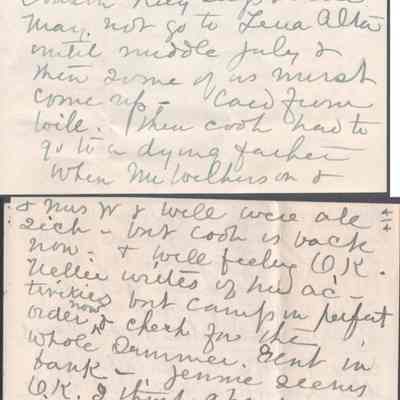 Cousin Kity says she
may not go to Loua Alta
until middle July &
then some of us must
come up – Card from
Wile. Their cook had to
go to a dying father
When Mr Wilkerson &
& Mrs W & Will were all
sick – but cook is back
now – & Will feeling O.K.
Nellie writes of her ac-
tivities but camp in perfect
now
order & check for the
whole Summer. Rent in
bank – Jennie seems
O.K. I think she